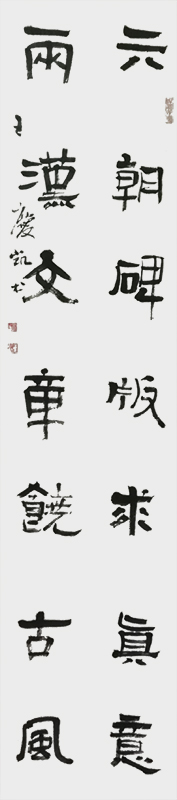 六朝碑版求真意
兩漢文章饒古風
王慶凱书